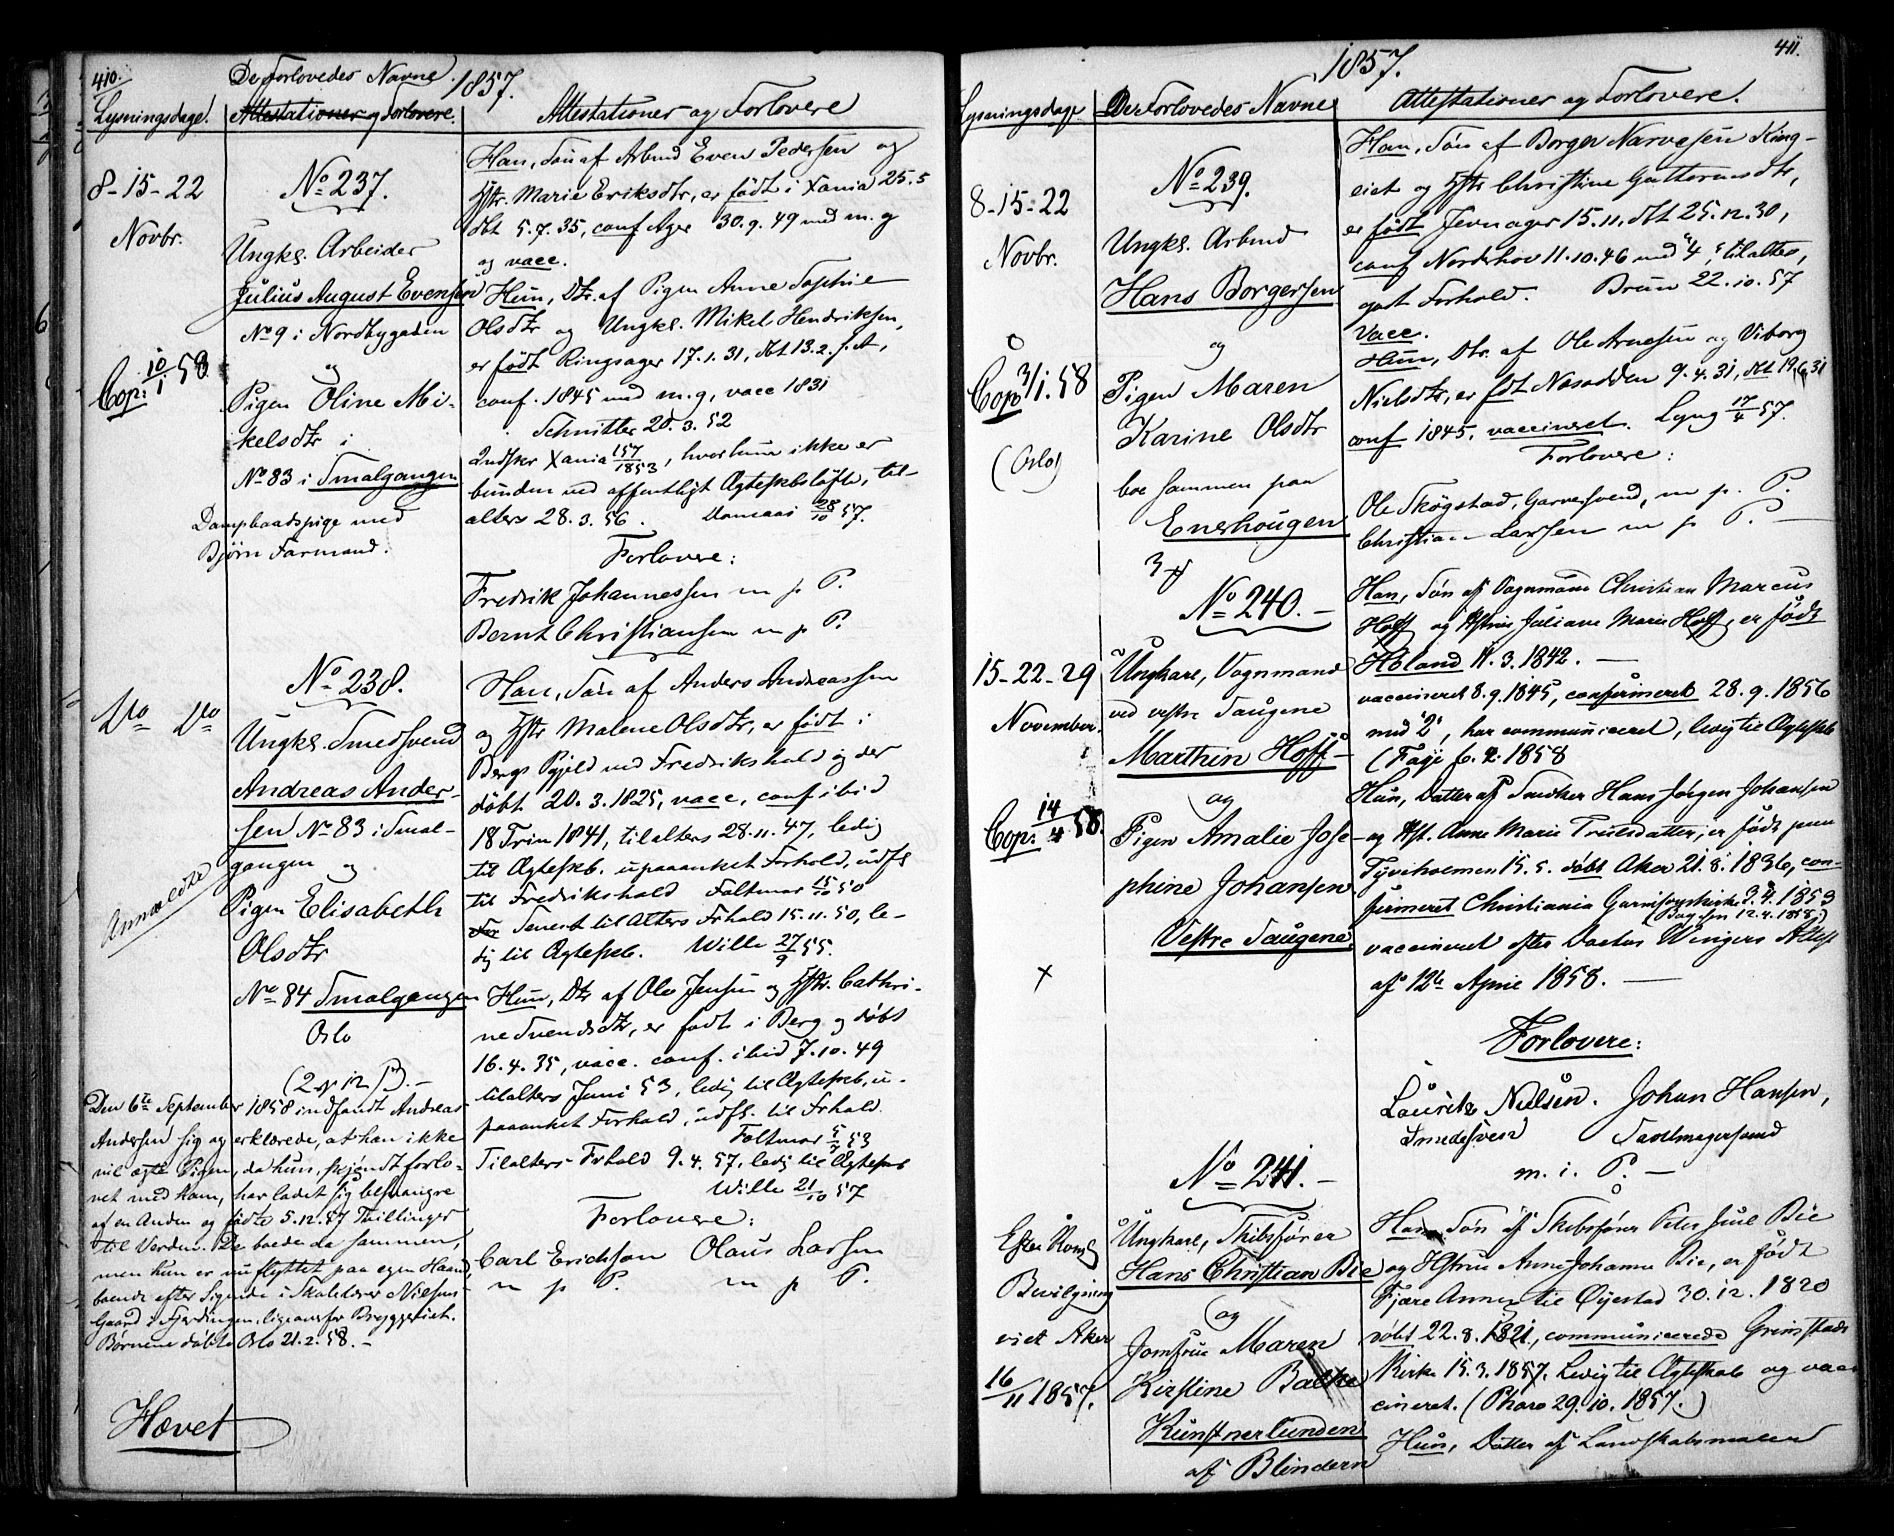 410.
De Forlovedes Navne. 1857.
Lysningsdage. Attestationer og Forlovere. Attestationer og Forlovere
8-15-22
Novbr.
Cop: 10/1 58
No 237.
Ungks. Arbeider
Julius August Evensen
No 9 i Nordbygaden
og
Pigen Oline Mi-
kelsdtr i
No 83 i Smalgangen
Dampbaadspige med
Bjørn Farmand.
Han, Søn af Arbmd Even Pedersen og
Hstr. Marie Eriksdtr, er født i Xania 25.5
dbt 5.7.35, conf Ager 30.9.49 med m.g
og vacc.
Hun, Dtr. af Pigen Anne Sophie
Olsdtr og Ungks. Mikel Hendriksen,
er født Ringsager 17.1.31, dbt 13.2. s.A,
conf. 1845 med m.g, vacc 1831
Schnitler 20.3.52
Indskr Xania 157/1853, hvor hun ikke er
bunden ved offentligt Ægteskbsløfte, til-
alters 28.3.56. 28/10 57.
Forlovere:
Fredrik Johannessen m p P.
Bernt Christiansen m p P.
Do Do
Anmeldte
No 238.
Ungks. Smedsvend
Andreas Ander-
sen No 83 i Smal-
gangen og
Pigen Elisabeth
Olsdtr
No 84 Smalgangen
Oslo
Han, Søn af Anders Andreassen
og Hstr Malene Olsdtr, er født i
Bergs Pgjeld ved Fredrikshald og der
døbt 20.3.1825, vacc, conf ibid
18 Trin 1841, tilalters 28.11.47, ledig
til Ægteskb. upaaanket Forhold, udfl
til Fredrikshald Faltmar 15/10 50
Senest til Alters Frhald 15.11.50, le-
dig til Ægteskb. Wille 27/9 55.
Hun, Dtr af Ole Jensen og Hstr. Cathri-
ne Svendsdtr, er født i Berg og døbt
16.4.35, vacc. conf. ibid 7.10.49
tilalters Juni 53, ledig til Ægteskb, u-
paaanket Forhold, udfl. til Frhald.
Faltmar 5/7 53
Tilalters Frhald 9.4.57, ledig til Ægteskb
Wille 21/10 57
Forlovere:
Carl Erickson Olaus Larsen
m p P. m p P.
Den 6te September 1858 indfandt Andreas
Andersen sig og erklærede, at han ikke
vil ægte Pigen, da hun, skjøndt forlo-
vet med ham, har ladet sig besvangre
af en Anden og fødte 5.12.57 Tvillinger
til Verden. De boede da sammen,
men hun er nu flyttet paa egen Haand,
boende efter Sigende i Skoletærer Nielsens
Gaard i Fjerdingen, ligeoverfor Bryggeriet.
Børnene døbte Oslo 21.2.58.
Hævet
411.
1857.
Lysningsdage De Forlovedes Navne Attestationer og Forlovere.
8-15-22
Novbr.
Cop 3/1.58
(Oslo)
No 239.
Ungks. Arbmd
Hans Borgersen
og
Pigen Maren
Karine Olsdtr
boe sammen paa
Enerhougen
Han, Søn af Borger Narvesen King-
eiet og Hstr Christine Guttormsdtr,
er født Jevnager 15.11. dbt 25.12.30,
conf Norderhov 11.10.46 med "4", tilalters,
godt Forhold. Bruun 22.10.57
Vacc.
Hun, Dtr. af Ole Arnesen og Viborg
Nielsdtr, er fdt Næsodden 9.4.31, dbt 19.6.31
conf 1845, vaccineret. Lyng 17/4 57.
Forlovere:
Ole Skøgstad, Garversvend, m p. P.
Christian Larssen m p P.
15-22-29
November.
Cop: 14/4 58.
No 240.
Ungkarl, Vognmand
ved vestre Saugene
Marthin Hoff
og
Pigen Amalie Jose-
phine Johansen
Vestre Saugene
Han, Søn af Vognmand Christian Marcus
Hoff og Hstrue Juliane Marie Hoff, er født
Høland 11.3.1842.
vaccineret 8.9.1845, confirmeret 28.9.1856
med "2", har communiceret, ledig til Ægteskb
(Faye 6.4.1858
Hun, Datter af Snedker Hans Jørgen Johansen
og Hst. Anne Marie Trulsdatter, er født paa
Tyveholmen 15.5. døbt Aker 21.8.1836, con-
firmeret Christiania Garnisonskirke 3.4.1853
vaccineret efter Doctor Wingers Attest
af 12te April 1858.
Forlovere:
Lauritz Nielsen. Johan Hansen,
Smedesven Sadelmagersvend
m. i. P.
Efter Kongl
Bevilgning
viet Aker
16/11 1857.
No 241.
Ungkarl, Skibsfører
Hans Christian Bie
og
Jomfrue Maren
Kirstine Balke
Kunstnerlunden
af Blindern
Han, Søn af Skibsfører Peter Juul Bie
og Hstrue Anne Johanna Bie, er født
Fjære Annex til Øiestad 30.12.1820
døbt 22.8.1821, communicerede Grimstads
Kirke 15.3.1857. Ledig til Ægteskab og vac-
cineret. (Pharo 29.10.1857.)
Hun, Datter af Landskabsmaler